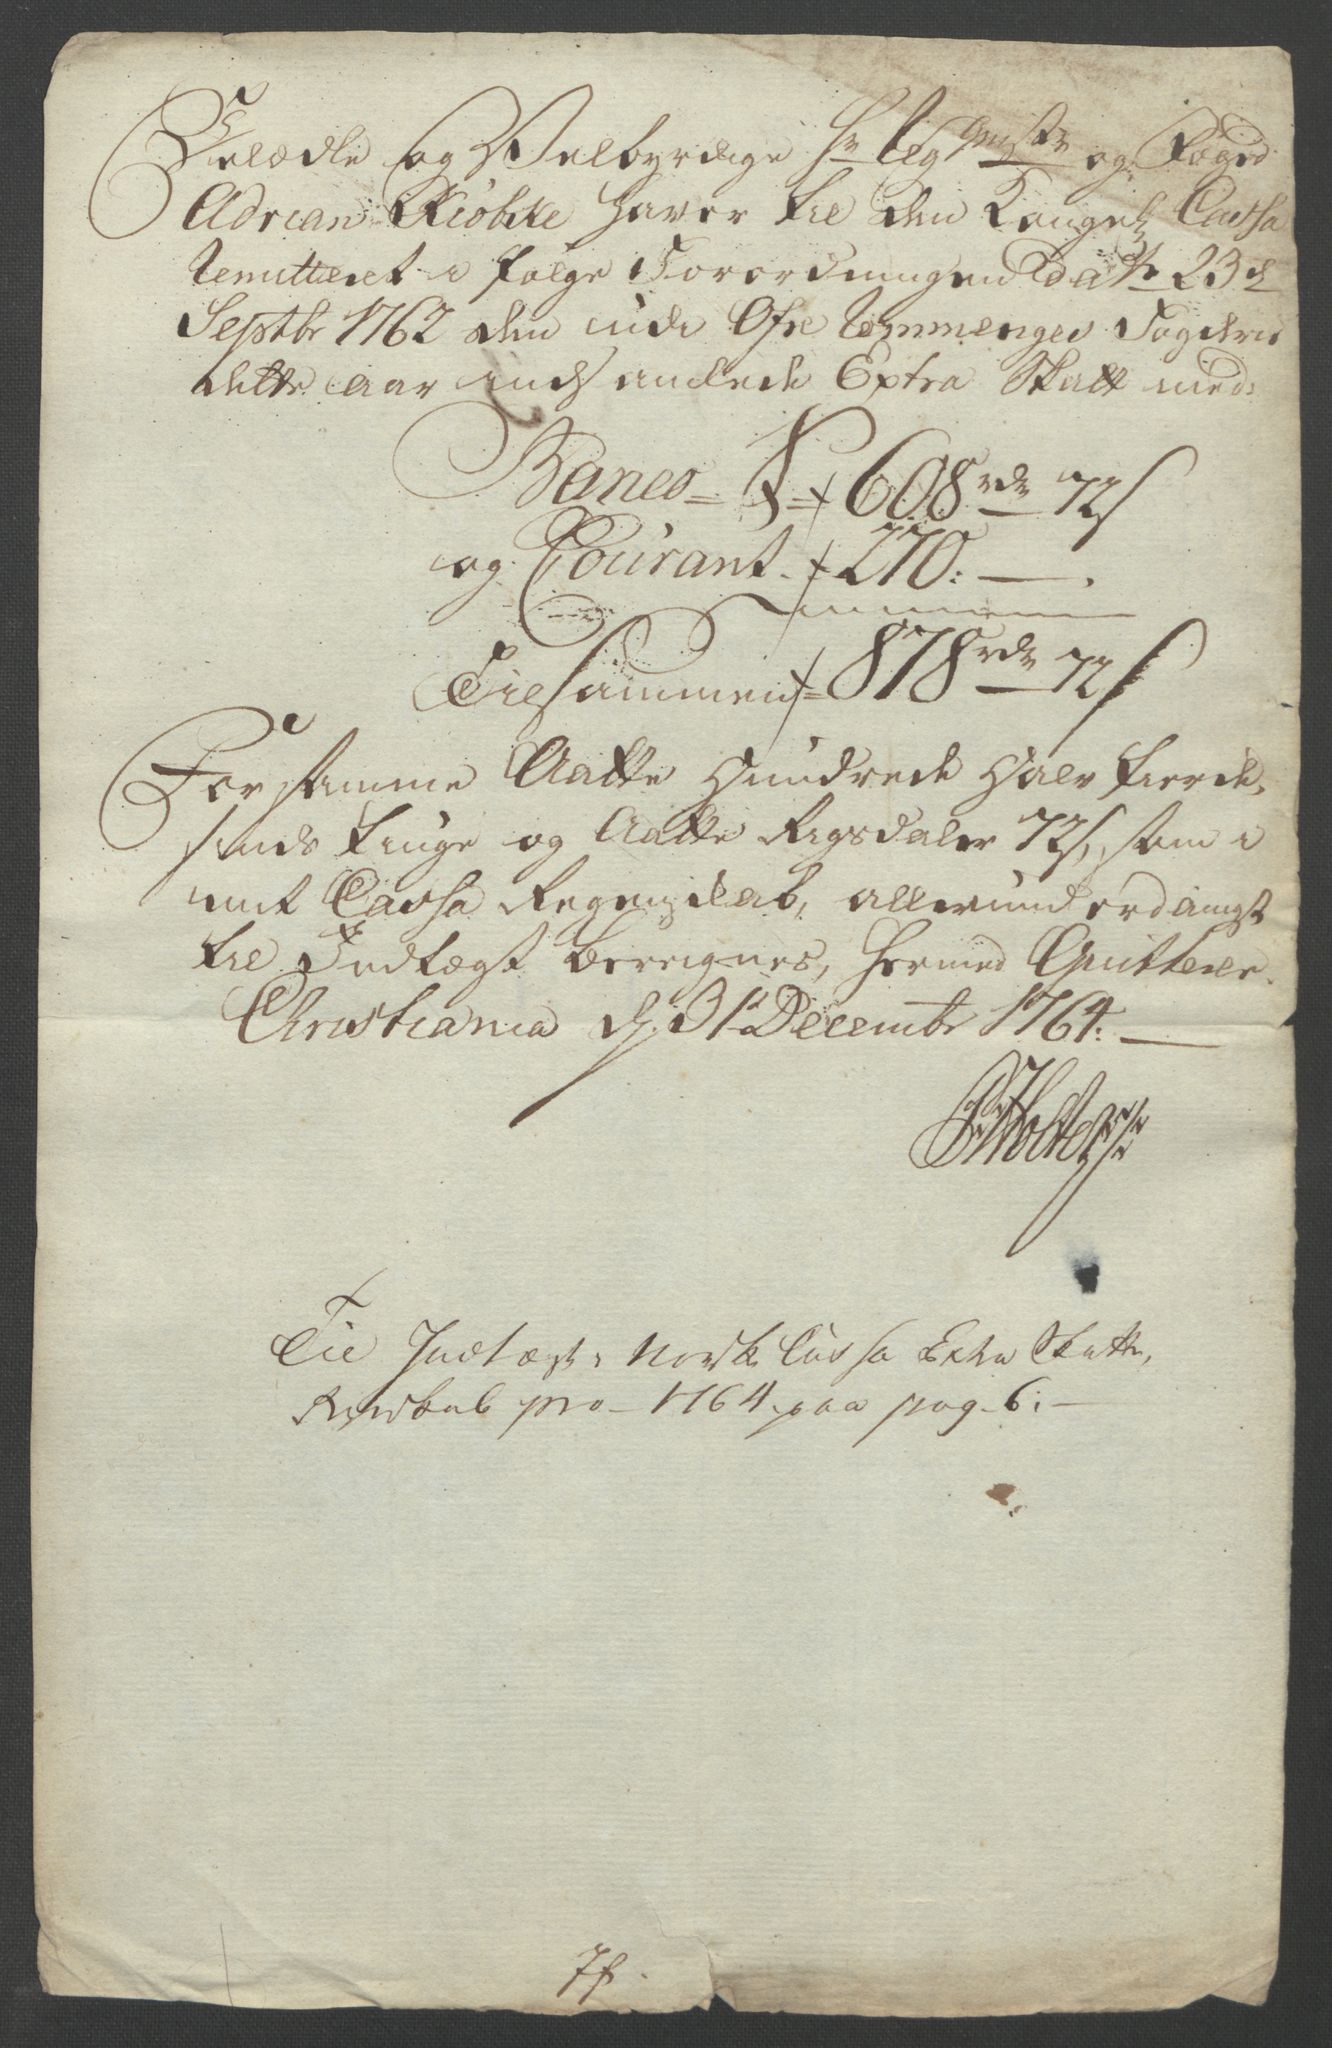 Velædle og Velbyrdige Hr og Foged
Adrian Kiøbke haver til den Kongel: Cassa
remitteret i følge Forordningen dat: 23d
Septbr 1762 den udi Øfre Rommeriges Fogderie
dette aar indsamlede Extra Skatt med:
Banco = 608 rdr 72 s
og Courant 270: —
Tilsammen 878 rdr 72 s
For samme Aatte Hundrede Halv fierde,
sinds tiuge og Aatte Rigsdaler 72 s, som i
mit Cassa Regenskab, allerunderdanigst
til Indtægt bereignes, hermed Quitteres.
Christiania d. 31 Decembr 1764. —
Holter
Til Indtægt i Norsk Cassa Extra Skatte,
Regnskab pro 1764 paa pag. 6: —